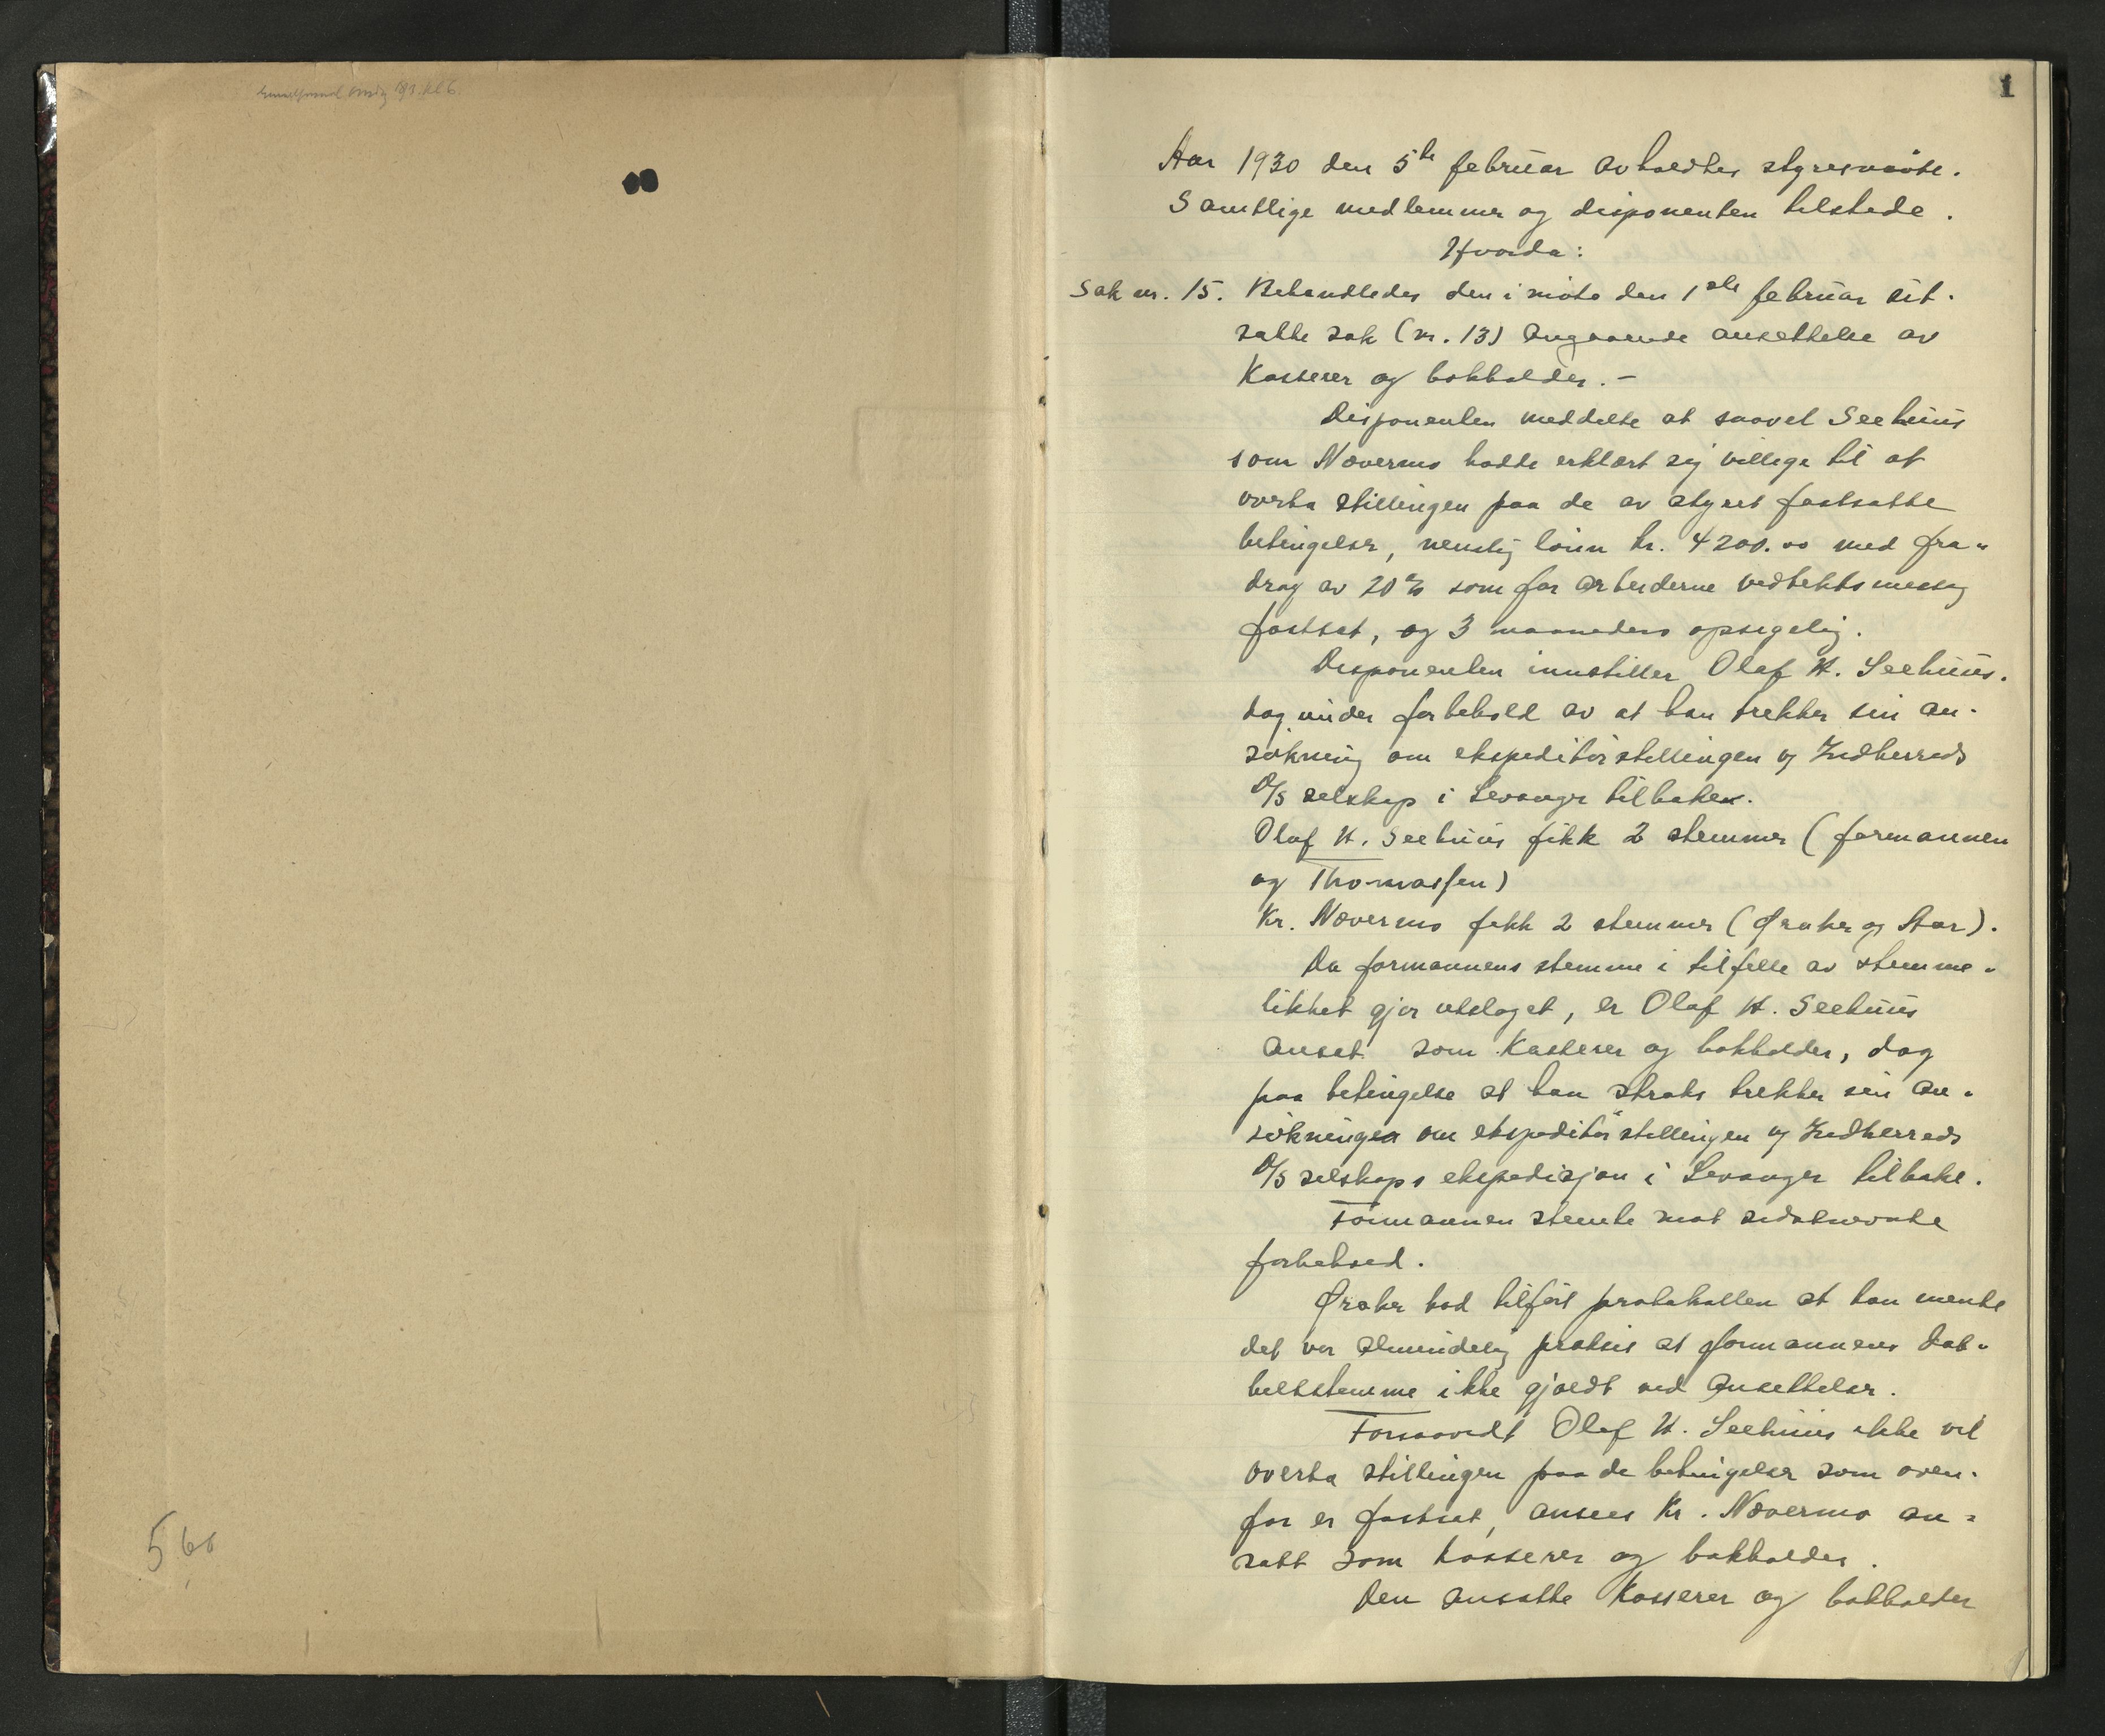 1
Aar 1930 den 5te februar avholdtes styresmöte.
Samtlige medlemmer og disponenten tilstede.
Hvorda:
Sak nr. 15. Behandledes den i möte den 1ste februar ut-
satte sak (nr. 13) angaaende ansettelse av
Kasserer og bokholder. -
Disponenten meddelte at saavel Seehuus
som Nævermo hadde erklært sig villige til at
overta stillingen paa de av styret fastsatte
betingelser, nemlig lönn kr. 4200.00 med fra-
drag av 20% som for arbeiderne vedtektsmessig
fastsat, og 3 maaneders opsigelig.
Disponenten innstiller Olaf H. Seehuus.
dog under forbehold av at han trekker sin an-
sökning om ekspeditörstillingen v/ Indherreds
D/S selskap i Levanger tilbake.
Olaf H. Seehuus fikk 2 stemmer (formannen
og Thomassen)
Kr. Nævermo fikk 2 stemmer ( Øraker og Aar).
Da formannens stemme i tilfelle av stemme-
likhet gjör utslaget, er Olaf H. Seehuus
anset som Kasserer og bokholder, dog
paa betingelse at han straks trekker sin an-
sökningen om ekspeditör stillingen v/ Indherreds
D/S selskaps ekspedisjon i Levanger tilbake.
Formannen stemte mot sidstnevnte
forbehold.
Øraker bad tilfört protokollen at han mente
det var almindelig praksis at formannens dob-
beltstemme ikke gjældt ved ansettelser.
Forsaavidt Olaf H. Seehuus ikke vil
overta stillingen paa de betingelser som oven-
for er fastsat, ansees Kr. Nævermo an-
satt som kasserer og bokholder.
Den ansatte Kasserer og bokholder
560